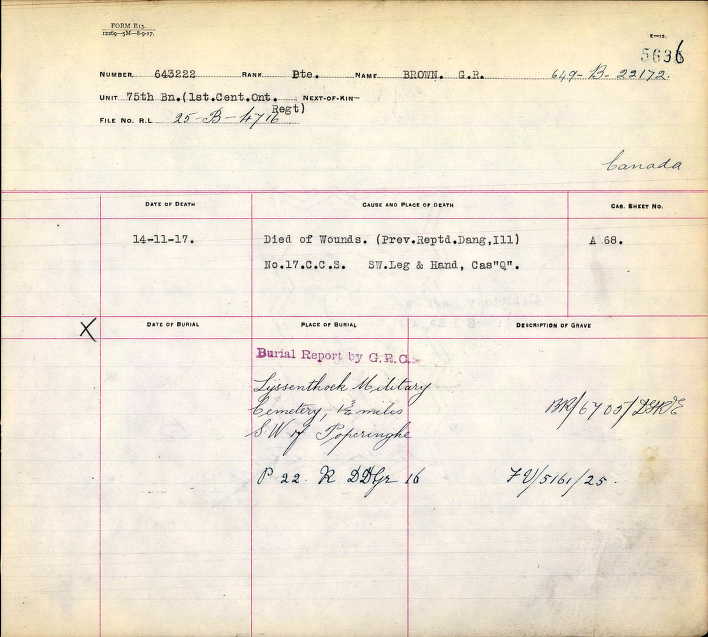 FORM E13.
12269—5M—8-9-17.
E—13.
5636
NUMBER 643222 RANK Pte. NAME BROWN. G.R. 649-B-22172.
UNIT 75th Bn.(1st.Cent.Ont. Regt) NEXT-OF-KIN—
FILE NO. R.L. 25-B-4716
Canada
DATE OF DEATH CAUSE AND PLACE OF DEATH CAS. SHEET NO.
14-11-17. Died of Wounds. (Prev.Reptd.Dang,Ill) A 68.
No.17.C.C.S. SW.Leg & Hand, Cas"Q".
X DATE OF BURIAL PLACE OF BURIAL DESCRIPTION OF GRAVE
Burial Report by G.R.C.
Lyssenthoek Military
Cemetery, miles BR/6705/DGR&E
S.W of Poperinghe
P 22. R DD Gr 16 FV/5161/25.